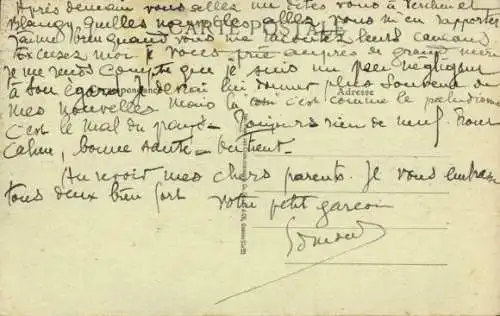 Après demain vous allez me dites vous à
Blangy, quelles nouvelles allez vous m'en rapporter
J'aime bien quand vous me racontez leurs cancans
Excusez moi je vous prie auprès de grand mère
je me rends compte que je suis un peu négligent
à son égard, je devrai lui donner plus souvent de
Correspondance
Adresse
mes nouvelles mais la coin c'est comme le paludisme
c'est le mal du pays. Toujours rien de neuf. Tout
calme, bonne santé
Au revoir mes chers parents. Je vous embrasse
tous deux bien fort
votre petit garçon